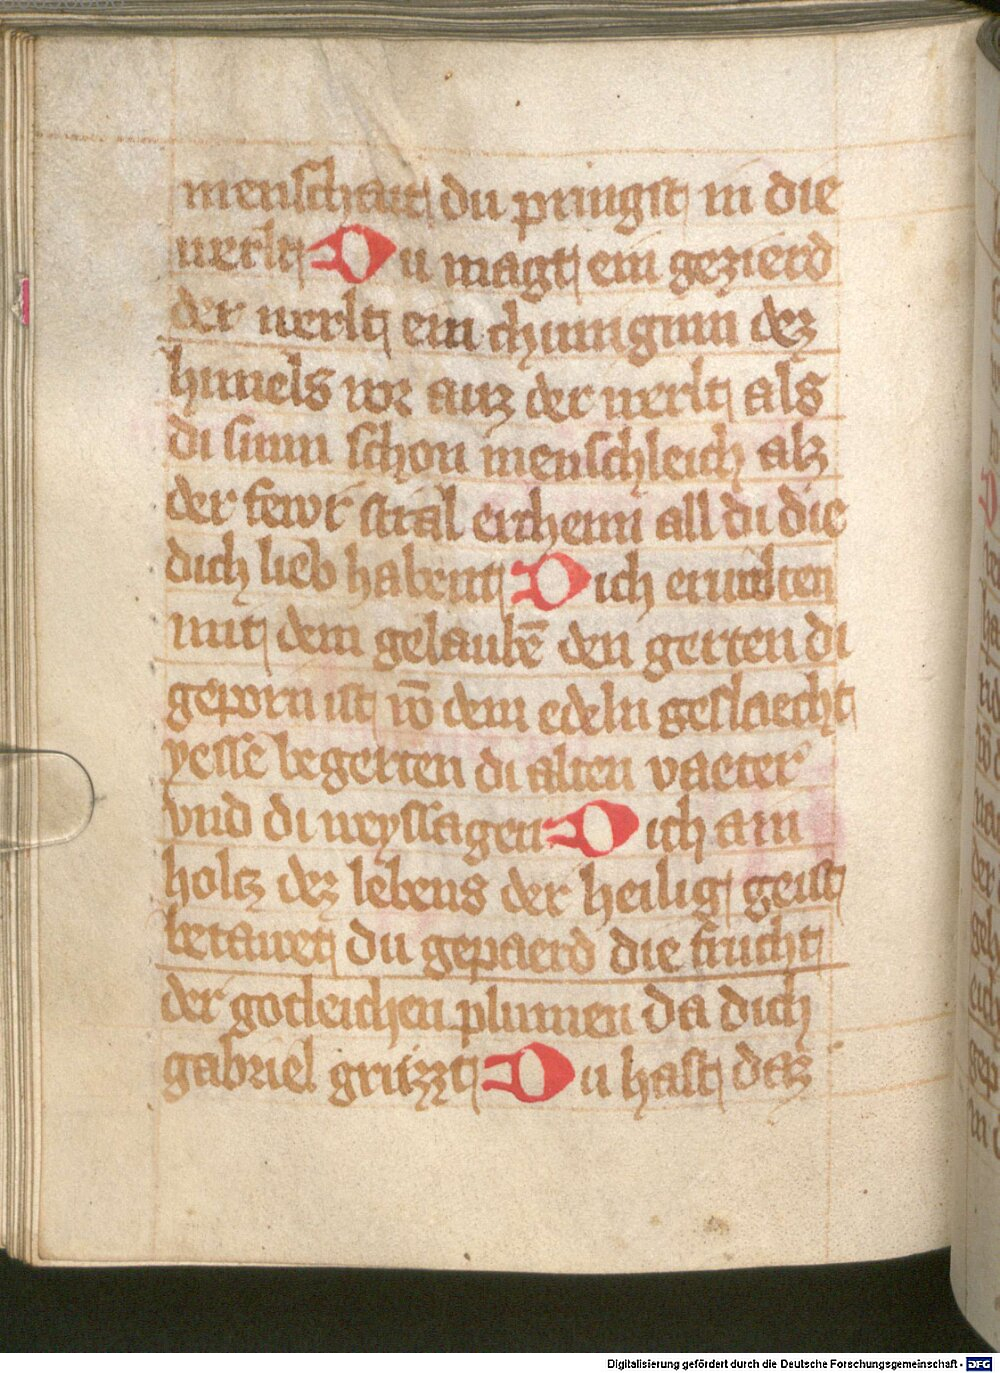 menschait du pringst in die
werlt Du magt ein gezierd
der werlt ein chuniginn dez
himels vor auz der werlt als
di sunn schon menschleich alz
der fewr stral erchenn all di die
dich lieb habent Dich erwelten
mit dem gelaubē den gerten di
geporn ist vō dem edeln geslaecht
yesse begerten di alten vaeter
vnd di weyssagen Dich am
holtz dez lebens der heilig geist
betawet du gepaerd die frucht
der gotleichen plumen da dich
gabriel grüzzt Du hast daz
Digitalisierung gefördert durch die Deutsche Forschungsgemeinschaft - DFG